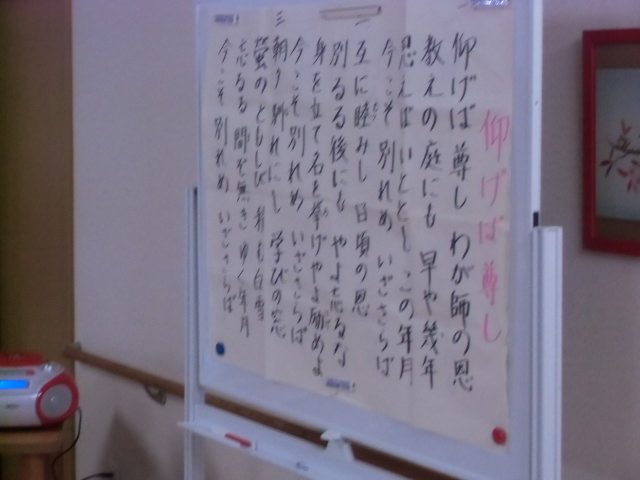 仰げば尊し
仰げば 尊し わが師の恩
教えの庭にも 早や幾年
思えば いととし この年月
今こそ 別れめ いざさらば
二
互に睦みし 日頃の恩
別るる後にも やよ忘るな
身を立て 名を挙げ やよ励めよ
今こそ 別れめ いざさらば
三
朝夕 馴れにし 学びの窓
螢のともしび 積む白雪
忘るる 間ぞ無き ゆく年月
今こそ 別れめ いざさらば